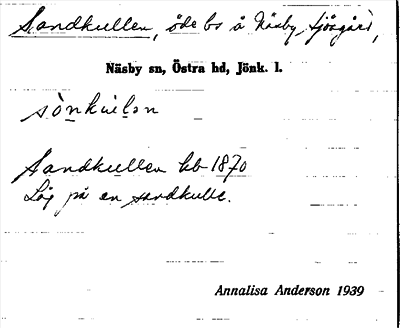 Sandkullen, öde bs å Näsby sjögärd,
Näsby sn, Östra hd, Jönk. l.
Sandkullen hb 1870
Låg på en sandkulle.
Annalisa Anderson 1939